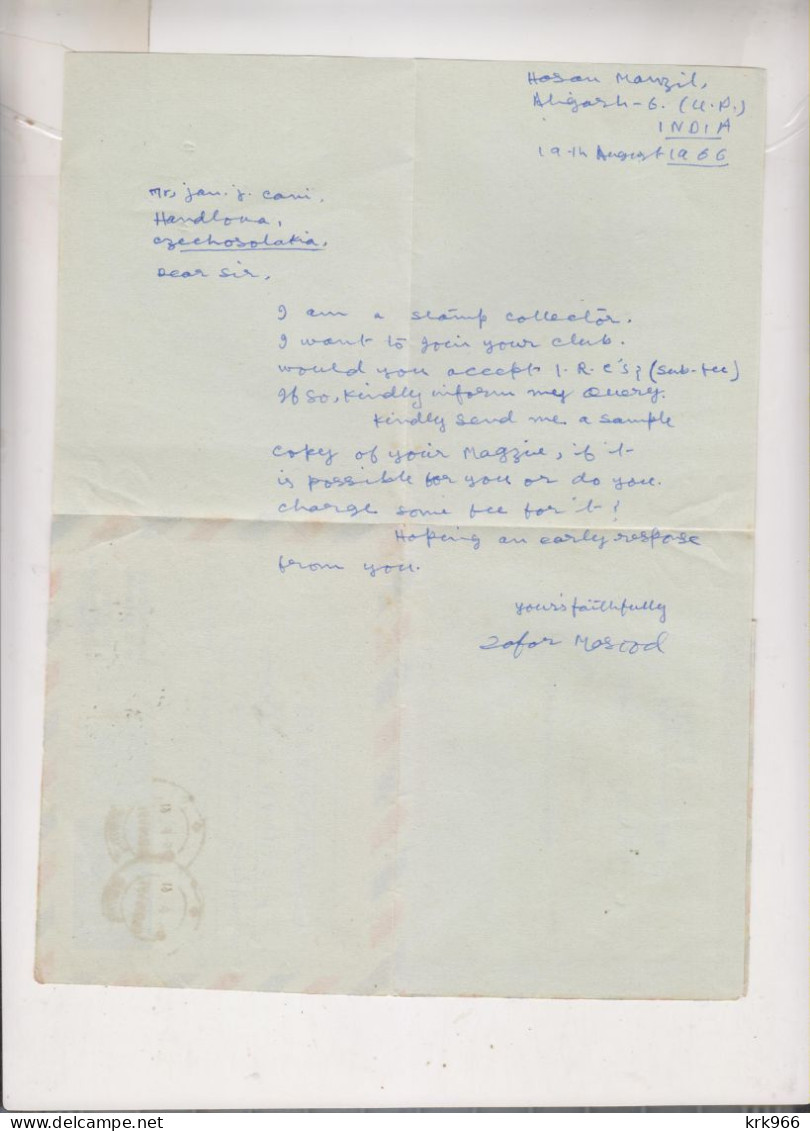 Hasan Manzil,
Aligarh-6. (U.P.)
INDIA
19th August 1966
Mr, Jan. J. Cani.
Handlova,
Czechosolakia.
Dear Sir,
I am a stamp collector.
I want to join your club.
would you accept I.R.C's; (sub-fee)
If so, kindly inform my Query.
Kindly send me a sample
copy of your Magzie, if it
is possible for you or do you
charge some fee for it?
Hoping an early respose
from you.
your's faithfully
Zafar Masood
delcampe.net
krk966